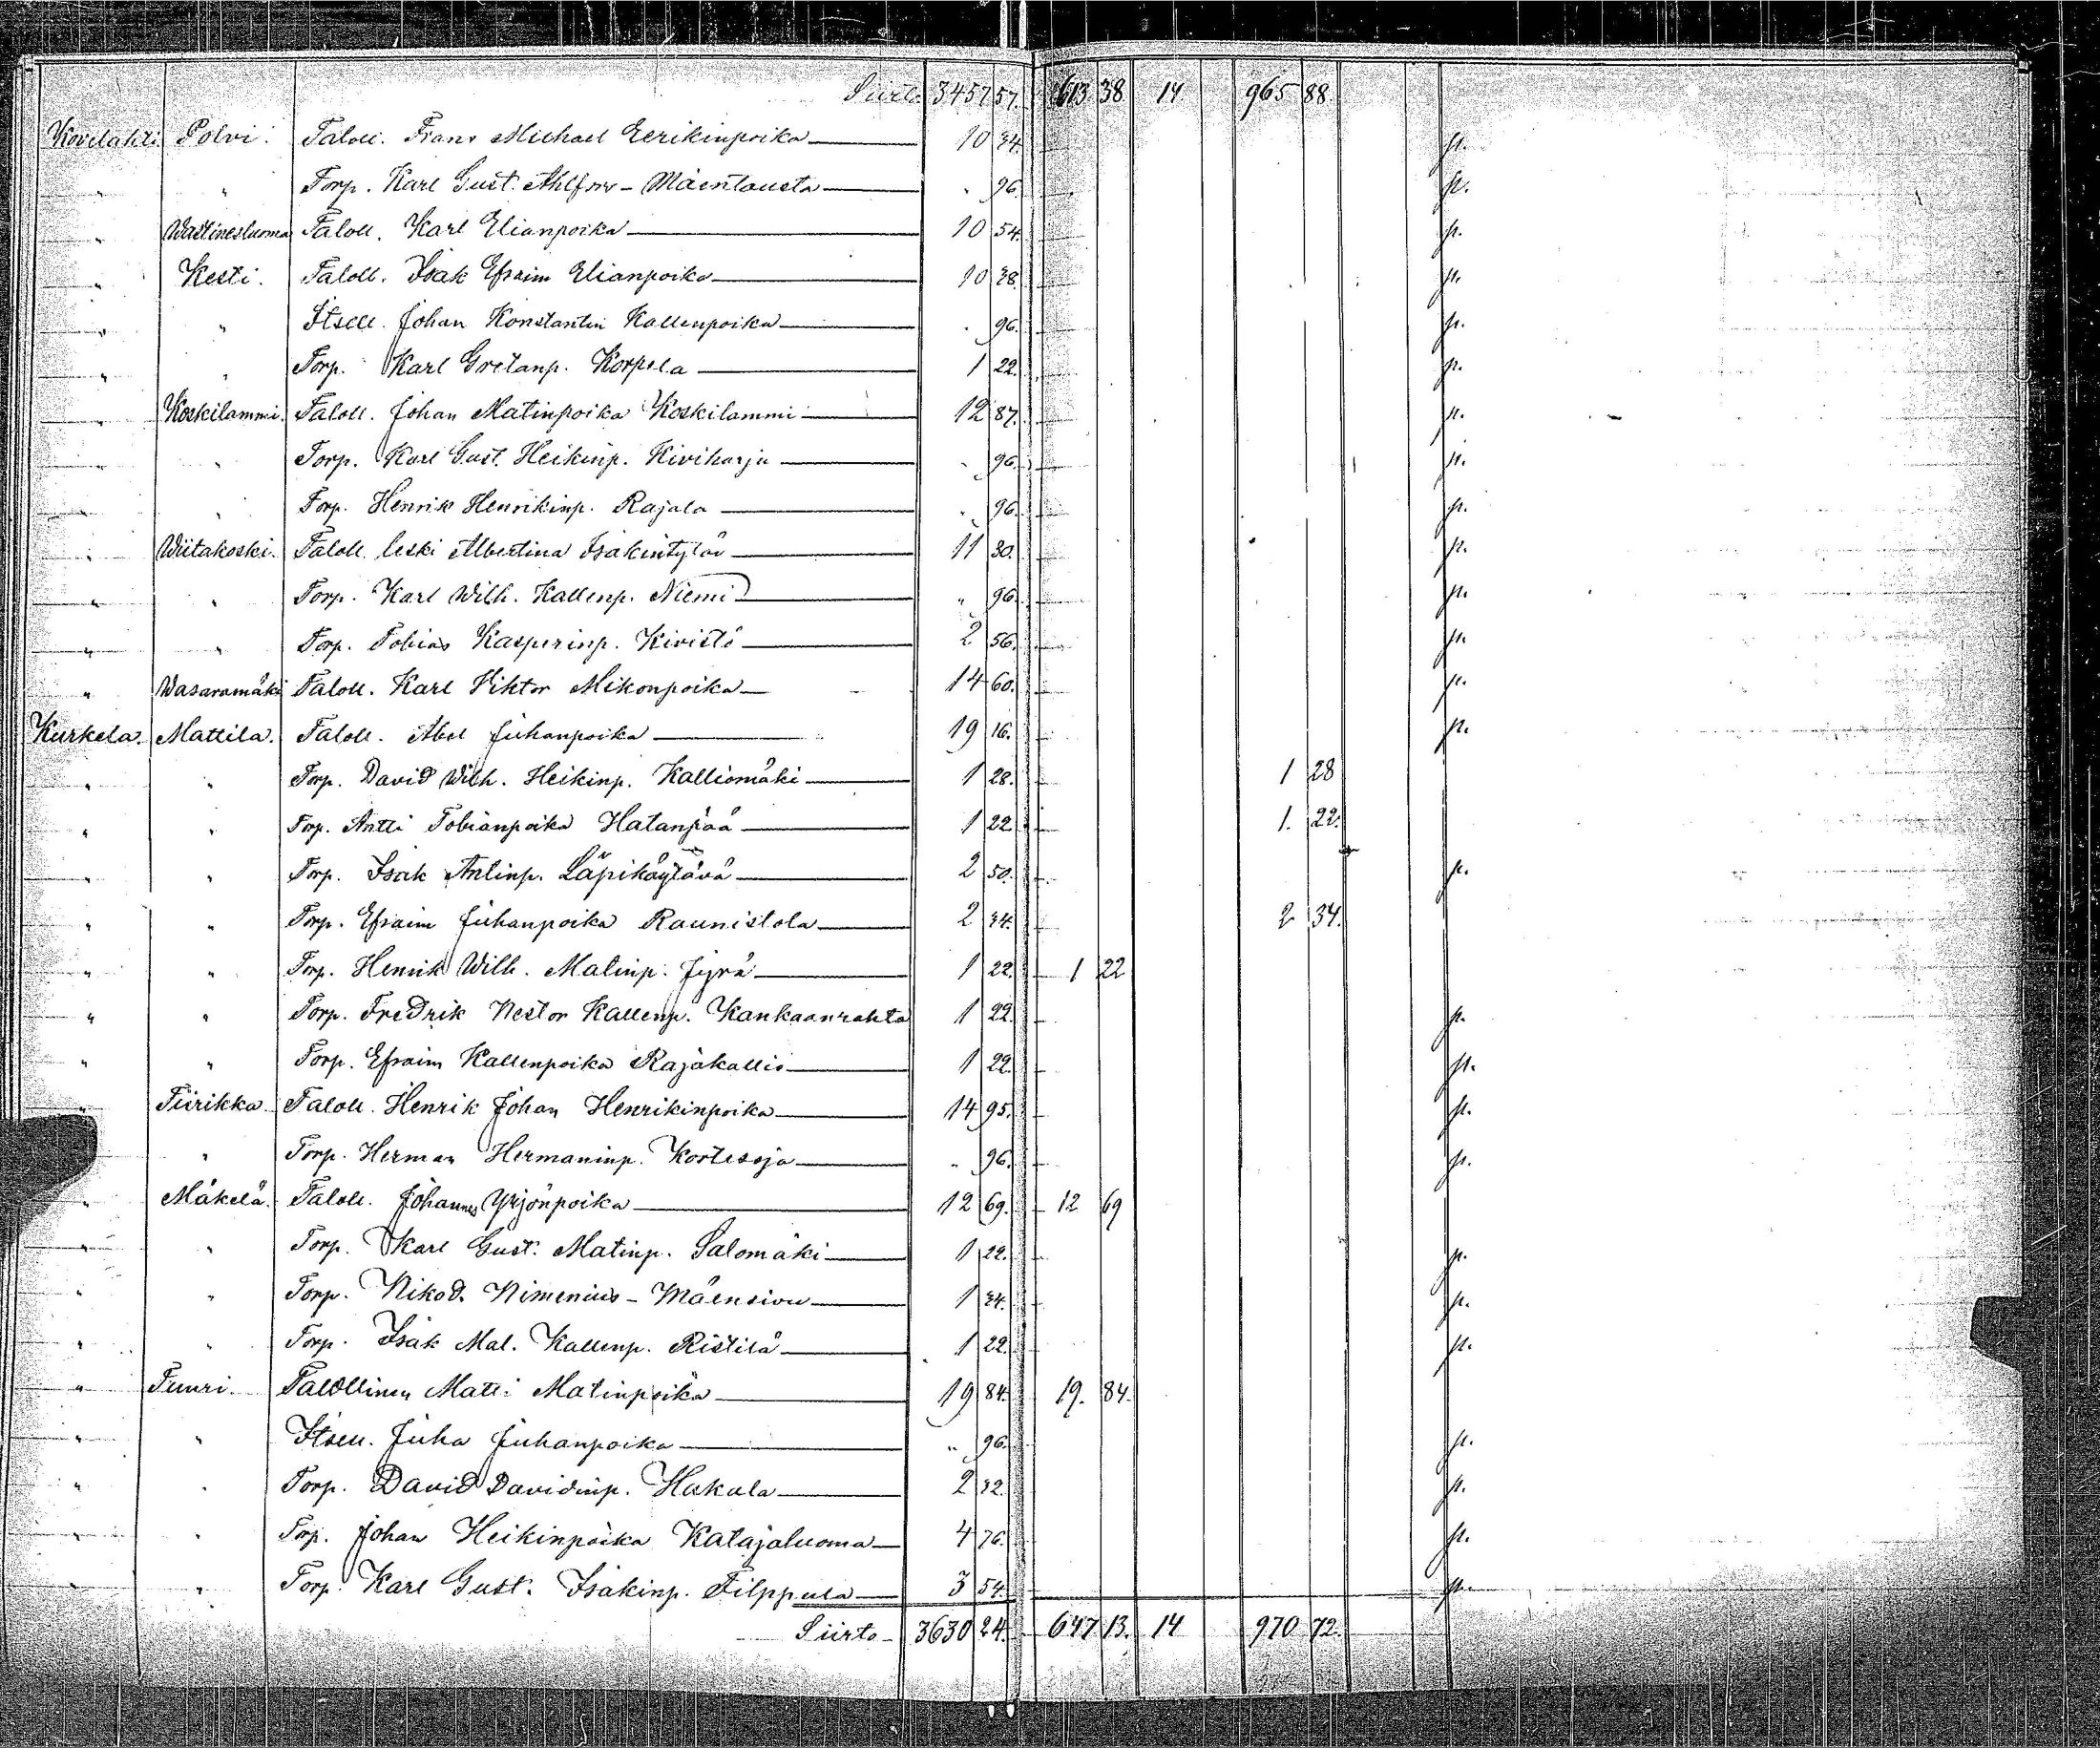 Siirto 3457 57. 613 38 14 965 88
Kovelahti Polvi. Taloll. Frans Michael Eerikinpoika 10 34. p.
" " Torp. Karl Gust. Ahlfors - Mäentausta " 96. p.
" Wastinesluoma Taloll. Karl Elianpoika 10 54. p.
" Kesti. Taloll. Isak Efraim Elianpoika 10 28. p.
" " Itsell. Johan Konstantin Kallenpoika " 96. p.
" " Torp. Karl Gretanp. Korpela 1 22. p.
" Koskilammi. Taloll. Johan Matinpoika Koskilammi 12 87. p.
" " Torp. Karl Gust. Heikinp. Kiviharju " 96. p.
" " Torp. Henrik Henrikinp. Rajala " 96. p.
" Wiitakoski. Taloll. leski Albertina Isakintytär 11 30. p.
" " Torp. Karl Wilh. Kallenp. Niemi " 96. p.
" " Torp. Tobias Kasperinp. Kivistö 2 56. p.
" Wasaramäki Taloll. Karl Viktor Mikonpoika 14 60. p.
Kurkela. Mattila. Taloll. Abel Juhanpoika 19 16. p.
" " Torp. David Wilh. Heikinp. Kalliomäki 1 28. 1 28
" " Torp. Antti Tobianpoika Hatanpää 1 22 1. 22.
" " Torp. Isak Antinp. Läpikäytävä 2 50. p.
" " Torp. Efraim Juhanpoika Raunistola 2 34. 2 34.
" " Torp. Henrik Wilh. Matinp. Jyrä 1 22. 1 22
" " Torp. Fredrik Nestor Kallenp. Kankaanrahta 1 22. p.
" " Torp. Efraim Kallenpoika Rajakallio 1 22. p.
" Tiirikka. Taloll. Henrik Johan Henrikinpoika 14 95. p.
" " Torp. Herman Hermaninp. Kortesoja " 96. p.
" Mäkelä. Taloll. Johannes Yrjönpoika 12 69. 12 69
" " Torp. Karl Gust. Matinp. Salomäki 1 22. p.
" " Torp. Nikod. Nimenius - Mäensivu 1 34. p.
" " Torp. Isak Mat. Kallenp. Ristilä 1 22. p.
" Tuuri. Talollinen Matti Matinpoika 19 84. 19. 84.
" " Itsell. Juha Juhanpoika " 96. p.
" " Torp. David Davidinp. Hakala 2 32. p.
" " Torp. Johan Heikinpoika Katajaluoma 4 76. p.
" " Torp. Karl Gust. Isakinp. Filppula 3 54. p.
Siirto 3630 24. 647 13. 14 970 72.